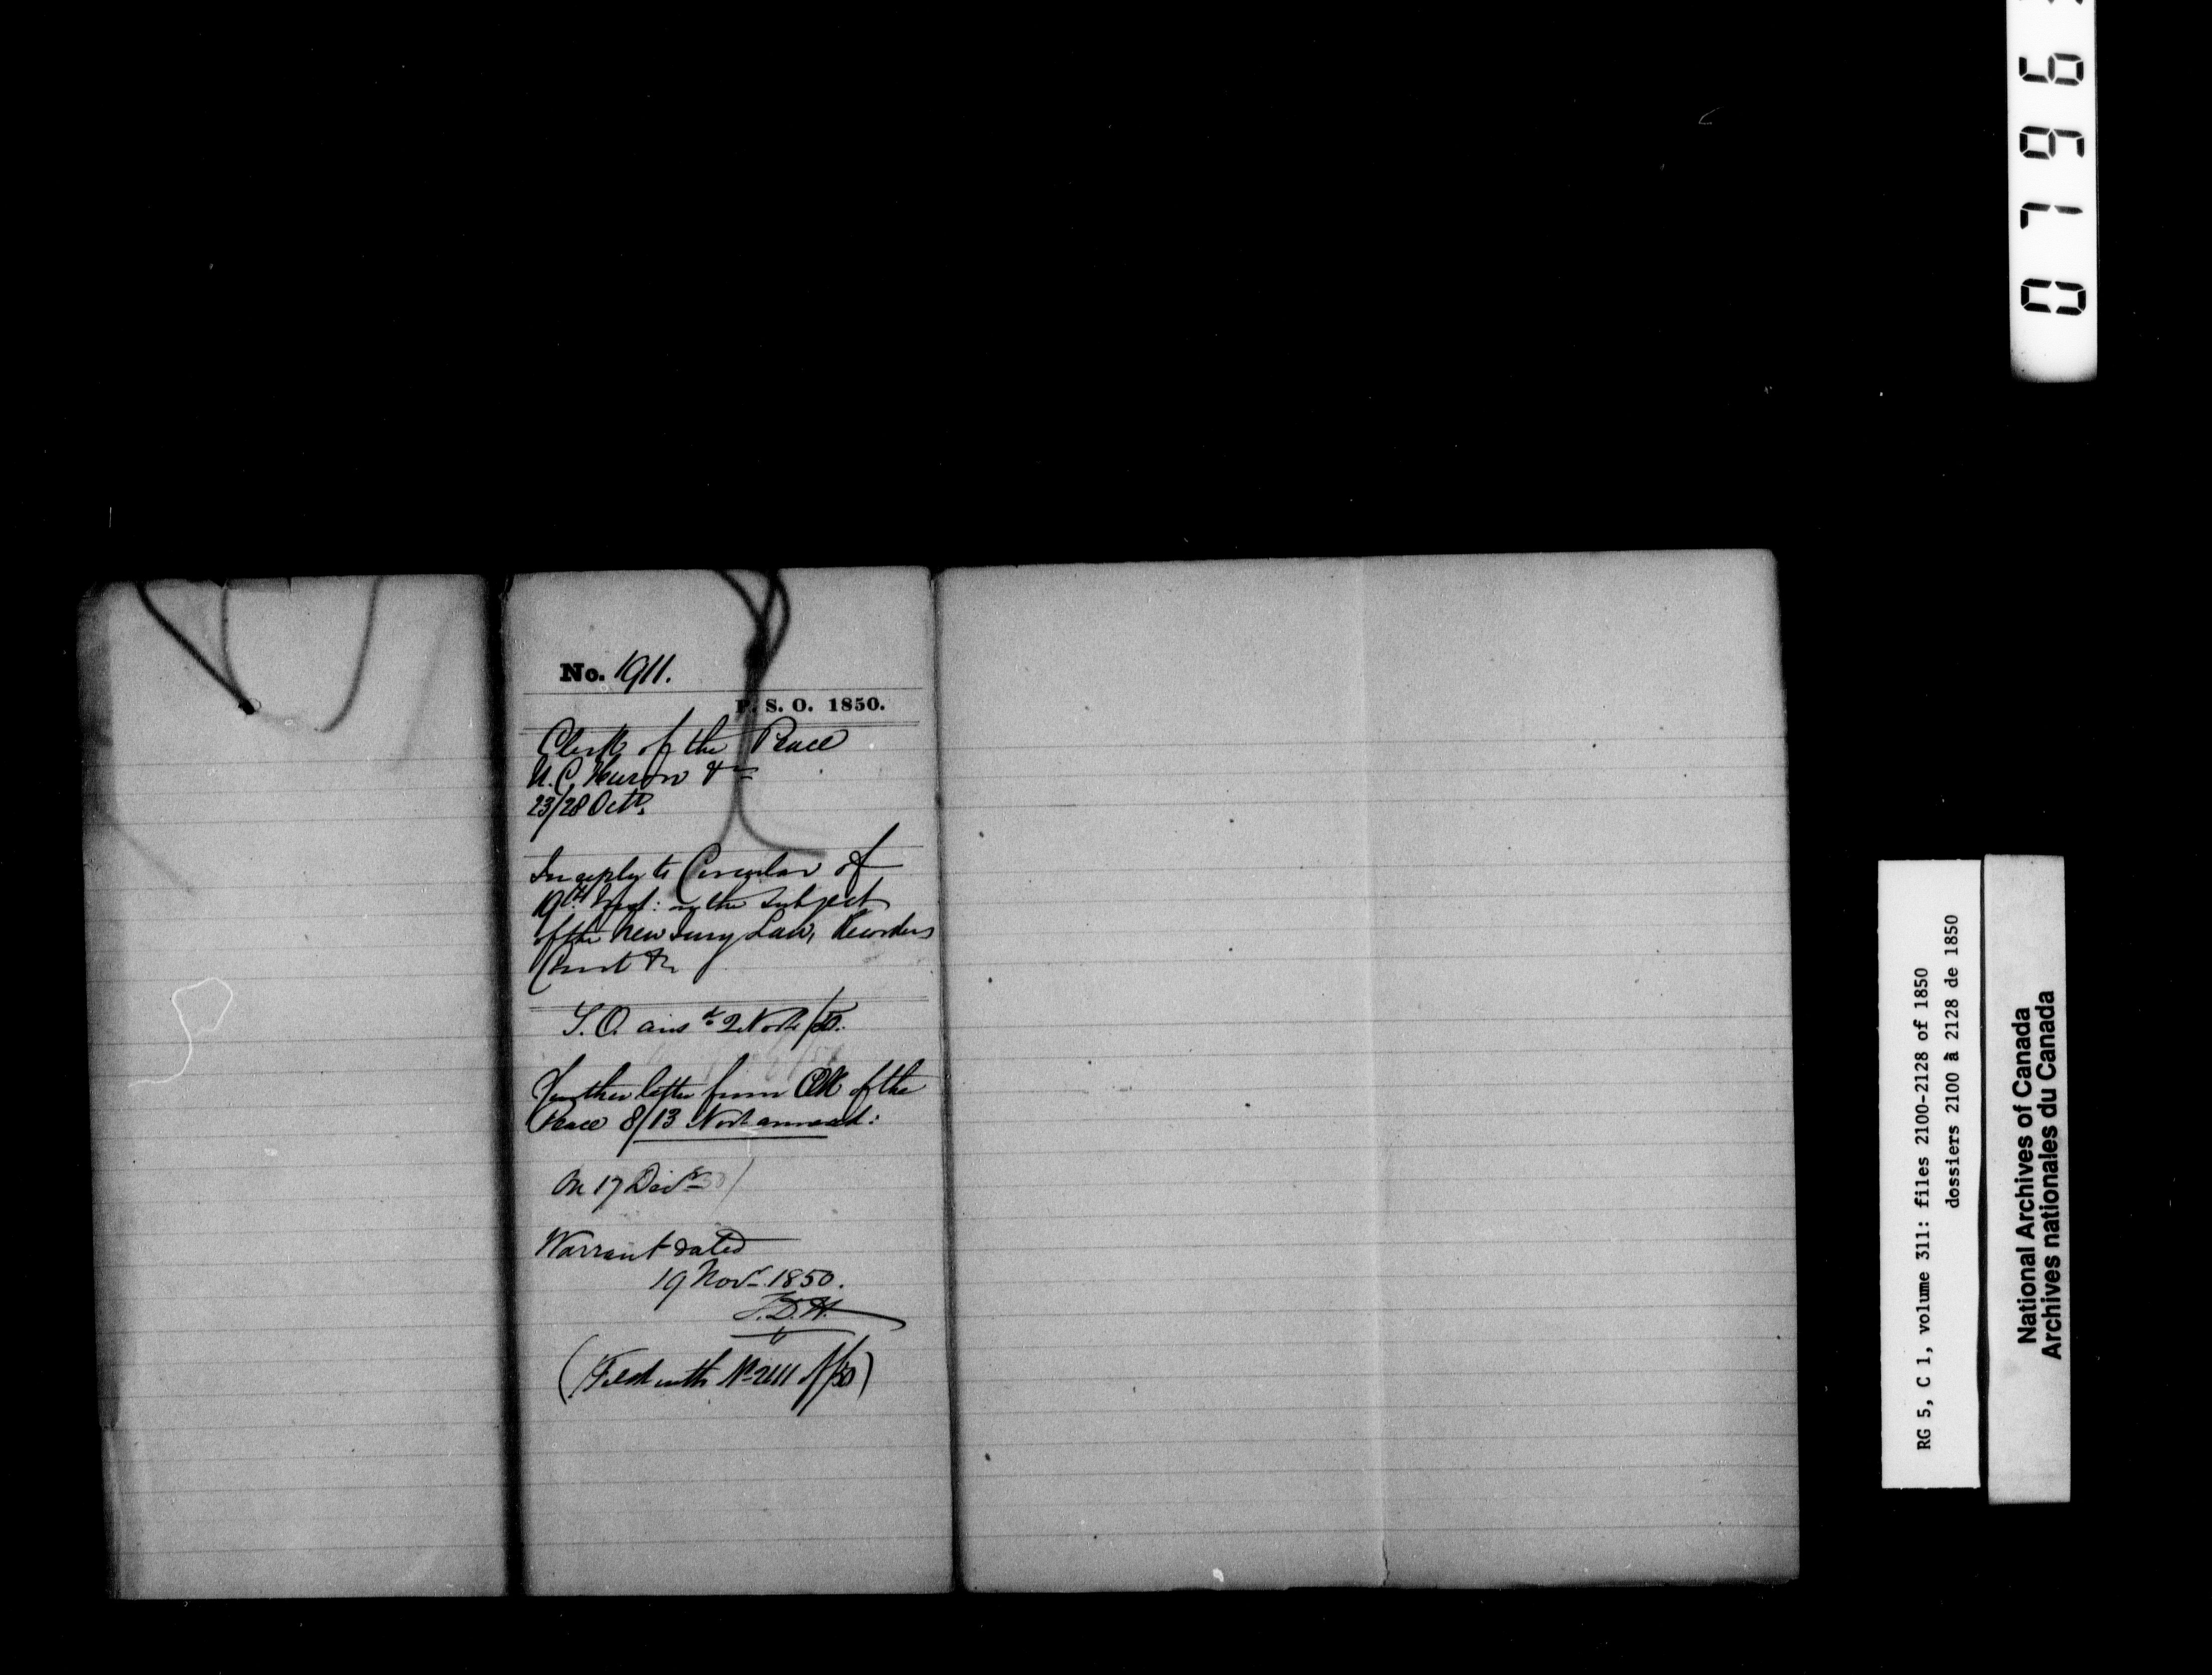 No. 1911.
P. S. O. 1850.
Clerk of the Peace
U.C. Huron &c
23/28 Octr.
In reply to Circular of
19th Inst: on the subject
of the new Jury Law, Recorders
Court &c
S.O. ansd 2 Novr /50.
Further letter from Clk of the
Peace 8/13 Novr annexed:
17 Decr
Warrant dated
19 Novr 1850.
(Filed with No 2111 of/50)
0796
RG 5, C 1, volume 311: files 2100-2128 of 1850
dossiers 2100 à 2128 de 1850
National Archives of Canada
Archives nationales du Canada